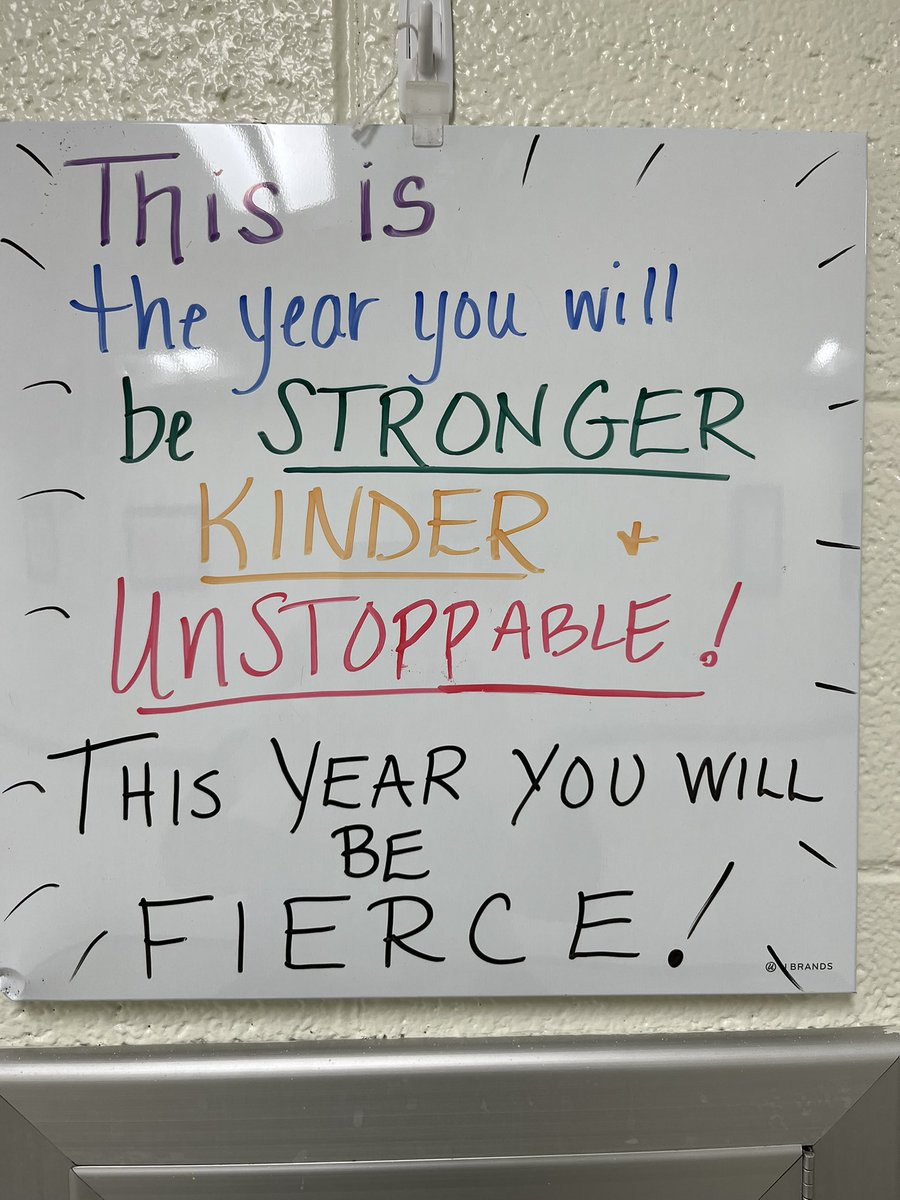 This is
the year you will
be STRONGER
KINDER +
UnSTOPPABLE!
THIS YEAR YOU WILL
BE
FIERCE!
U BRANDS